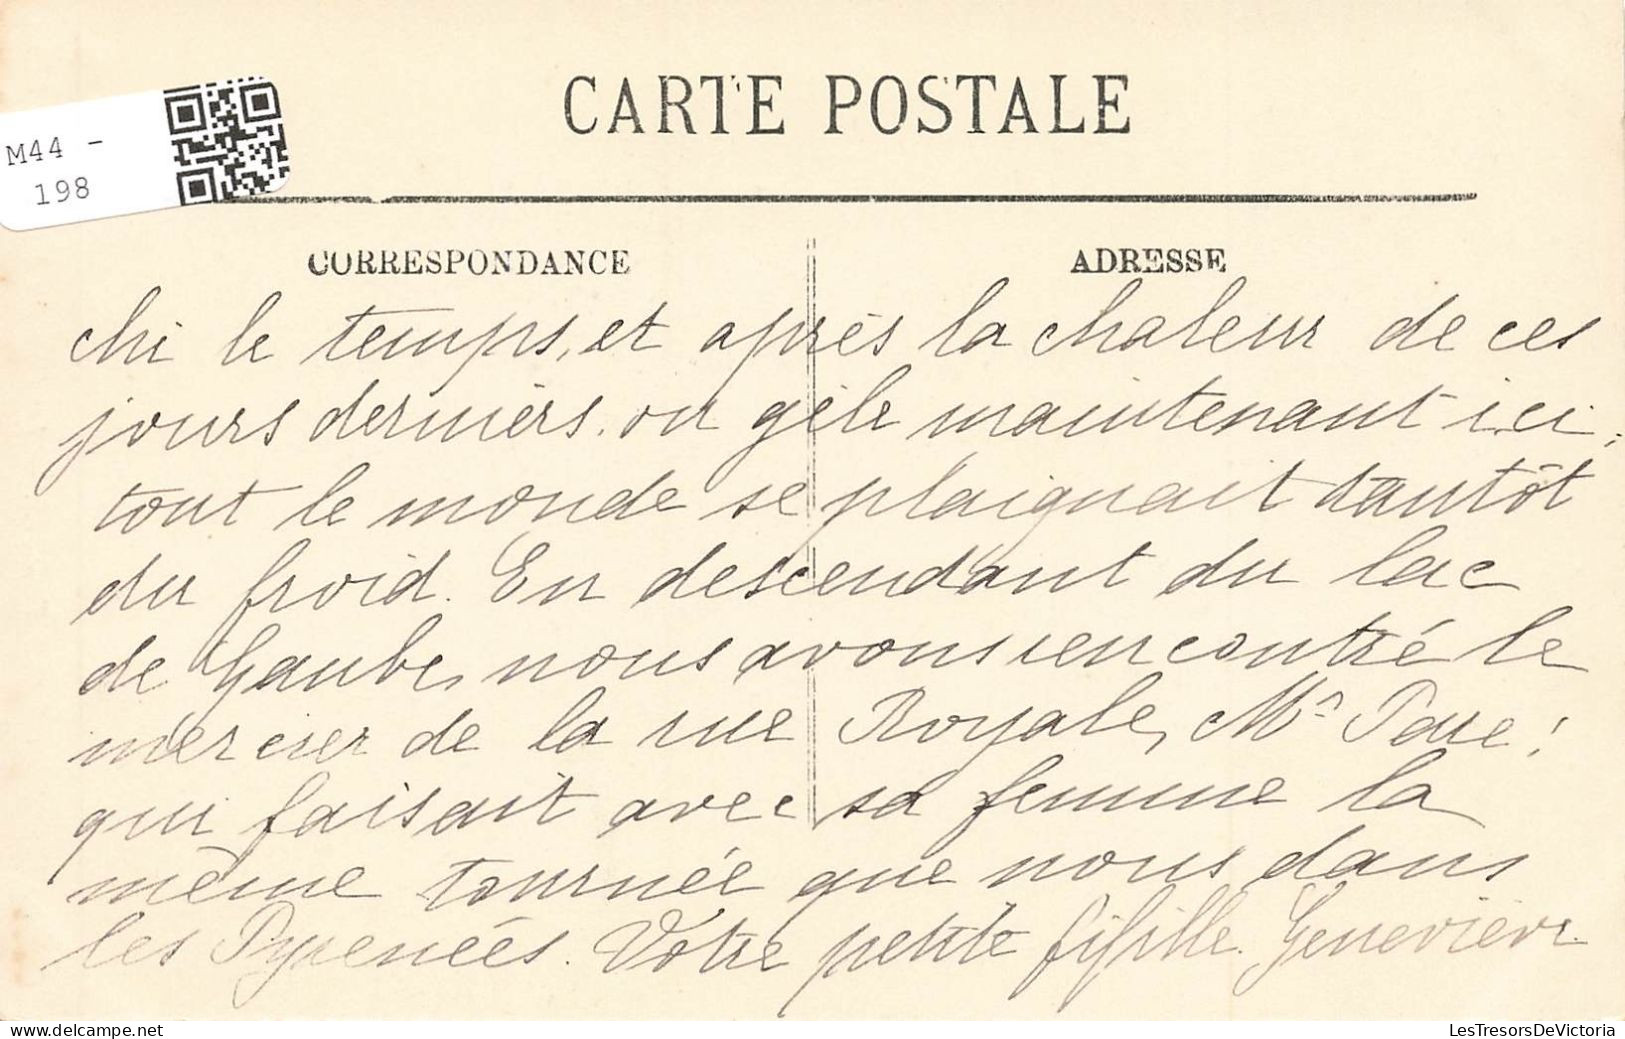 CARTE POSTALE
M44 -
198
CORRESPONDANCE
ADRESSE
chi le temps, et après la chaleur de ces
jours derniers. on gèle maintenant ici,
tout le monde se plaignait tantôt
du froid. En descendant du lac
de Gaube, nous avons rencontré le
mercier de la rue Royale, Mr
qui faisait avec sa femme la
même tournée que nous dans
les Pyrenées. Votre petite fifille. Geneviève
LesTresorsDeVictoria
www.delcampe.net